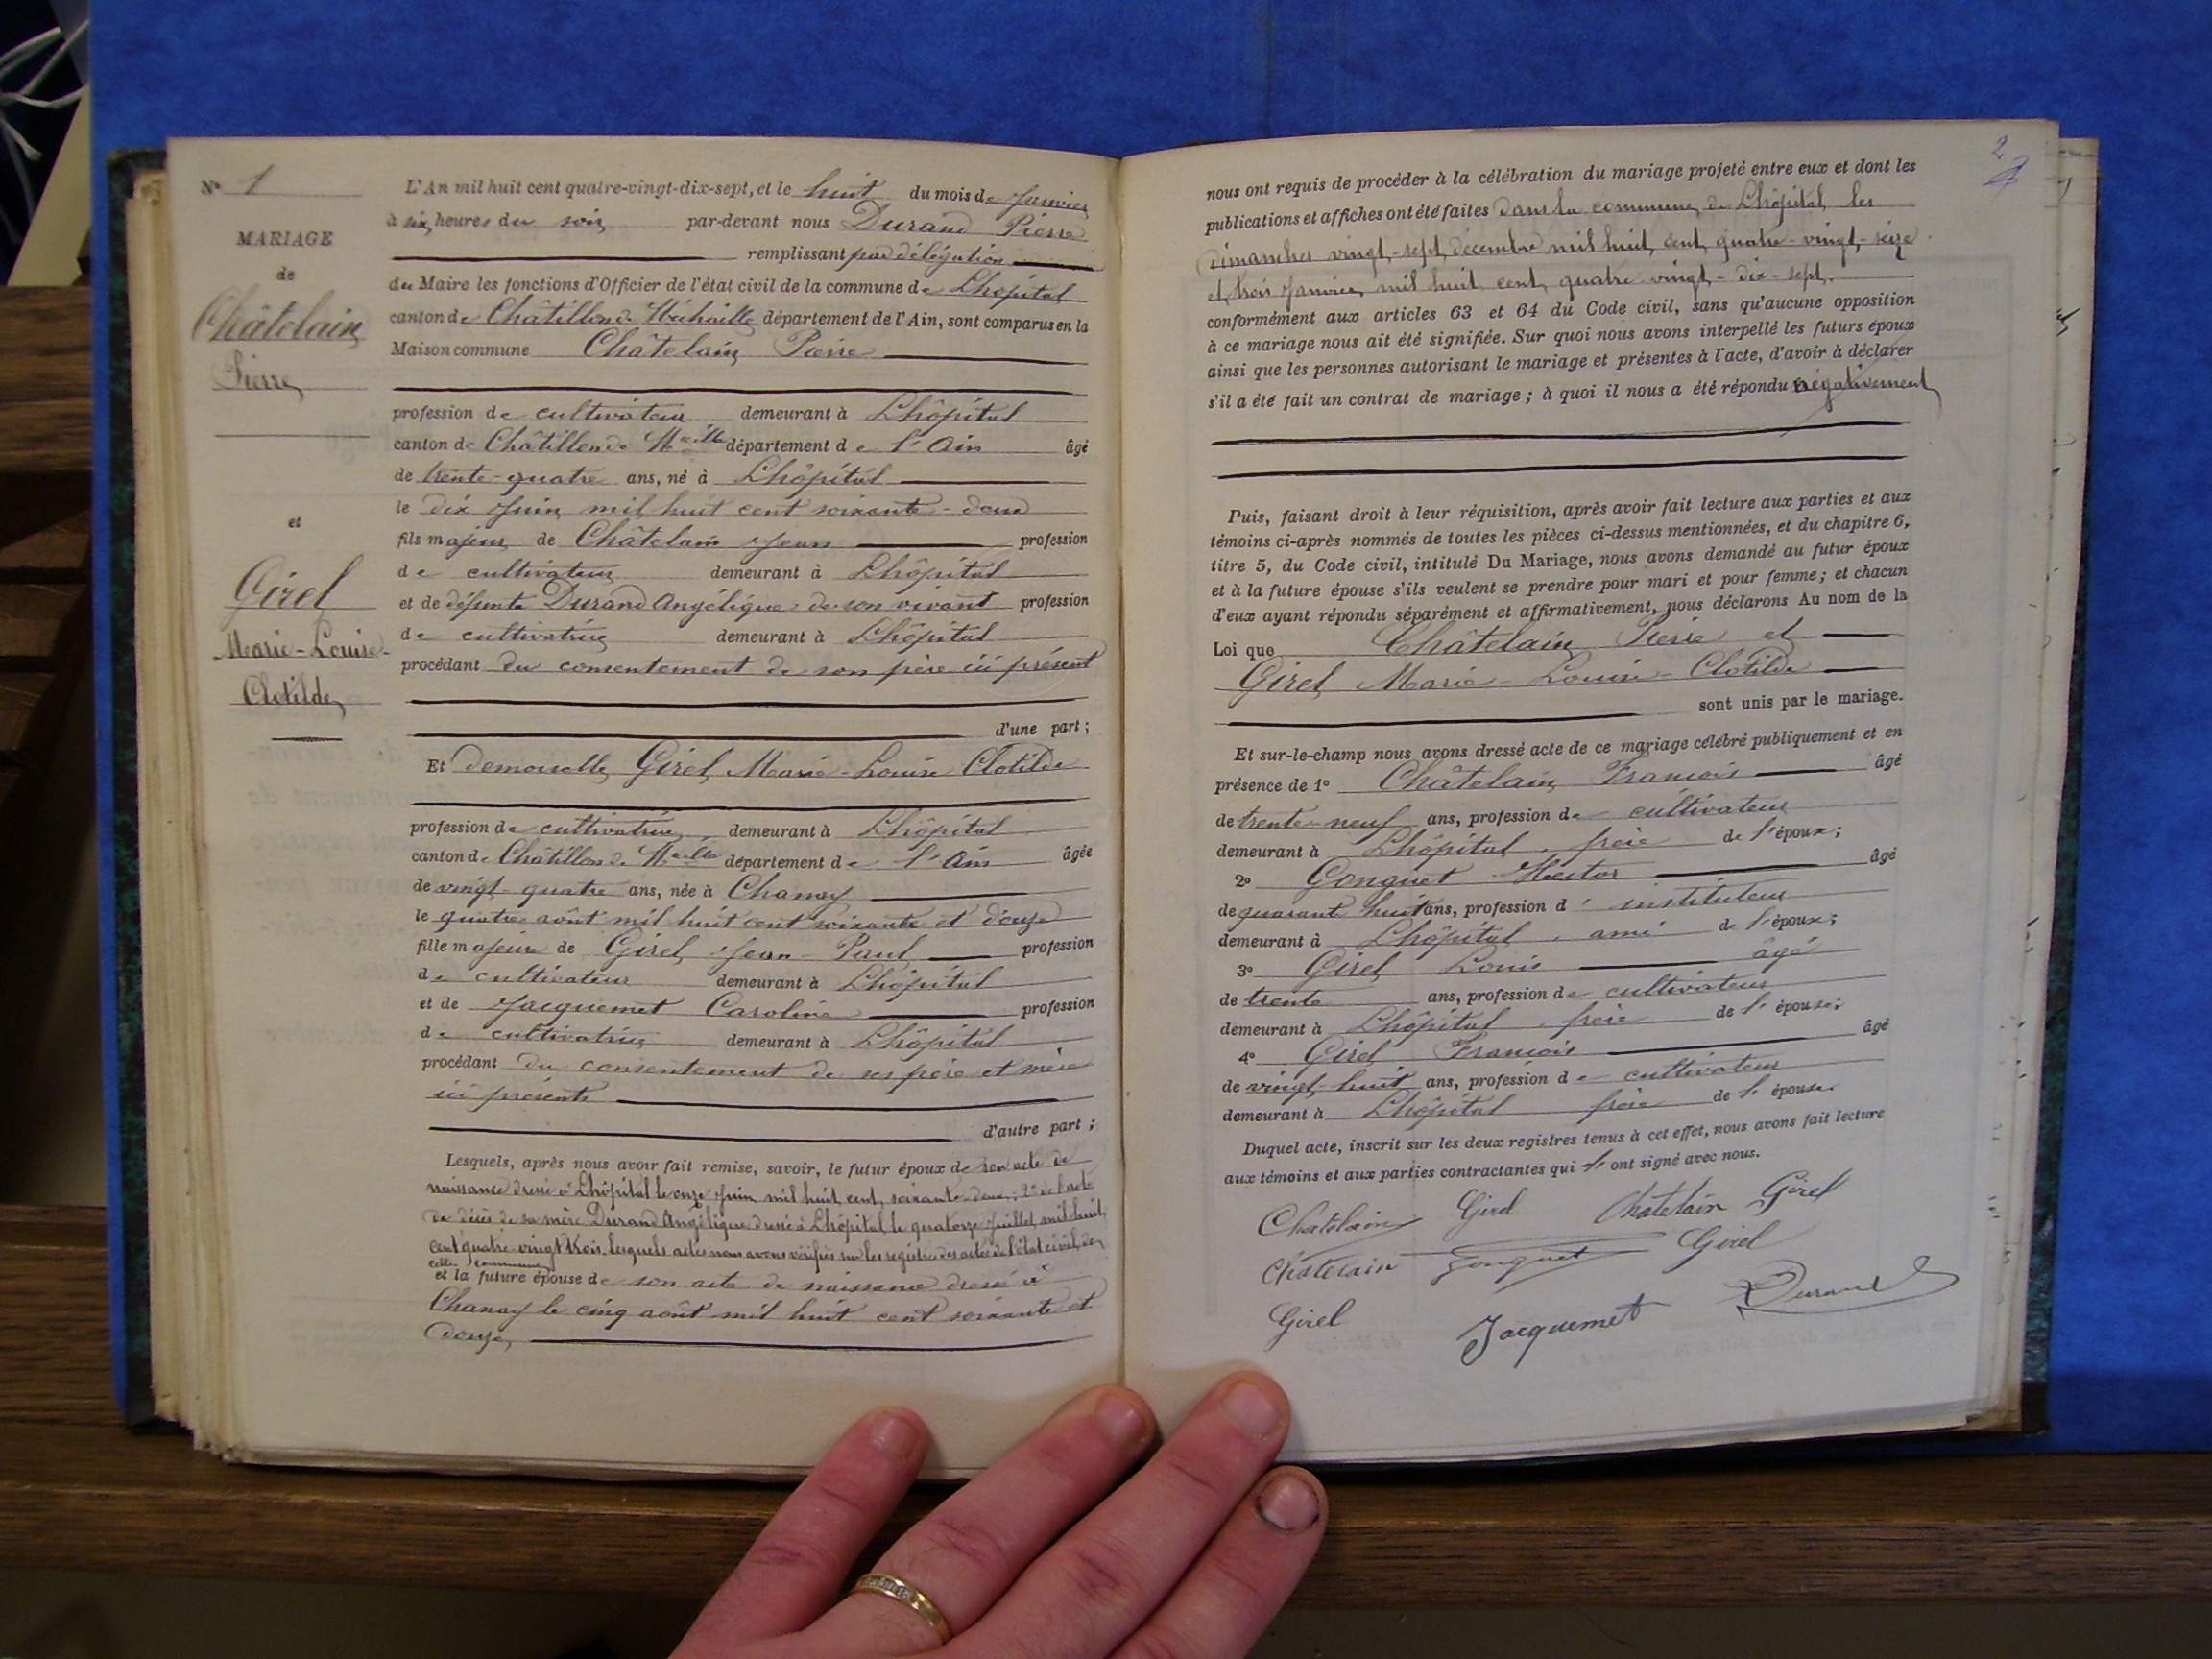 N° 1
MARIAGE
de
Châtelain
Pierre
et
Girel
Marie-Louise-
Clotilde
L'An mil huit cent quatre-vingt-dix-sept, et le huit du mois de Janvier
à six heures du soir par-devant nous Durand Pierre
remplissant par délégation
du Maire les fonctions d'Officier de l'état civil de la commune de Lhôpital
canton de Châtillon de Michaille département de l'Ain, sont comparus en la
Maison commune Châtelain Pierre
profession de cultivateur demeurant à Lhôpital
canton de Châtillon de Maille département de l'Ain âgé
de trente-quatre ans, né à Lhôpital
le dix Juin mil huit cent soixante-deux
fils majeur de Châtelain Jean profession
de cultivateur demeurant à Lhôpital
et de défunte Durand Angélique de son vivant profession
de cultivatrice demeurant à Lhôpital
procédant du consentement de son père ici présent
d'une part ;
Et demoiselle Girel Marie-Louise Clotilde
profession de cultivatrice demeurant à Lhôpital
canton de Châtillon de Maille département de l'Ain âgée
de vingt-quatre ans, née à Chanay
le quatre août mil huit cent soixante et douze
fille majeure de Girel Jean-Paul profession
de cultivateur demeurant à Lhôpital
et de Jacquemet Caroline profession
de cultivatrice demeurant à Lhôpital
procédant du consentement de ses père et mère
ici présents
d'autre part ;
Lesquels, après nous avoir fait remise, savoir, le futur époux de son acte de
naissance dressé à Lhôpital le onze Juin mil huit cent soixante-deux; 2° de l'acte
de décès de sa mère Durand Angélique dressé à Lhôpital le quatorze Juillet mil huit
cent quatre-vingt trois lesquels actes nous avons vérifiés sur les registres des actes de l'état civil de
cette commune
et la future épouse de son acte de naissance dressé à
Chanay le cinq août mil huit cent soixante et
douze,
2
nous ont requis de procéder à la célébration du mariage projeté entre eux et dont les
publications et affiches ont été faites dans la commune de Lhôpital les
dimanches vingt-sept décembre mil huit cent quatre-vingt-seize
et trois Janvier mil huit cent quatre vingt-dix-sept.
conformément aux articles 63 et 64 du Code civil, sans qu'aucune opposition
à ce mariage nous ait été signifiée. Sur quoi nous avons interpellé les futurs époux
ainsi que les personnes autorisant le mariage et présentes à l'acte, d'avoir à déclarer
s'il a été fait un contrat de mariage ; à quoi il nous a été répondu négativement
Puis, faisant droit à leur réquisition, après avoir fait lecture aux parties et aux
témoins ci-après nommés de toutes les pièces ci-dessus mentionnées, et du chapitre 6,
titre 5, du Code civil, intitulé Du Mariage, nous avons demandé au futur époux
et à la future épouse s'ils veulent se prendre pour mari et pour femme ; et chacun
d'eux ayant répondu séparément et affirmativement, nous déclarons Au nom de la
Loi que Châtelain Pierre et
Girel Marie-Louise-Clotilde
sont unis par le mariage.
Et sur-le-champ nous avons dressé acte de ce mariage célébré publiquement et en
présence de 1° Châtelain François âgé
de trente-neuf ans, profession de cultivateur
demeurant à Lhôpital, frère de l'époux;
2° Gonguet Hector âgé
de quarante huit ans, profession d'instituteur
demeurant à Lhôpital, ami de l'époux;
3° Girel Louis âgé
de trente ans, profession de cultivateur
demeurant à Lhôpital, frère de l'épouse;
4° Girel François âgé
de vingt-huit ans, profession de cultivateur
demeurant à Lhôpital frère de l'épouse.
Duquel acte, inscrit sur les deux registres tenus à cet effet, nous avons fait lecture
aux témoins et aux parties contractantes qui l'ont signé avec nous.
Chatelain Girel Chatelain Girel
Chatelain Gonguet Girel
Girel Jacquemet Durand